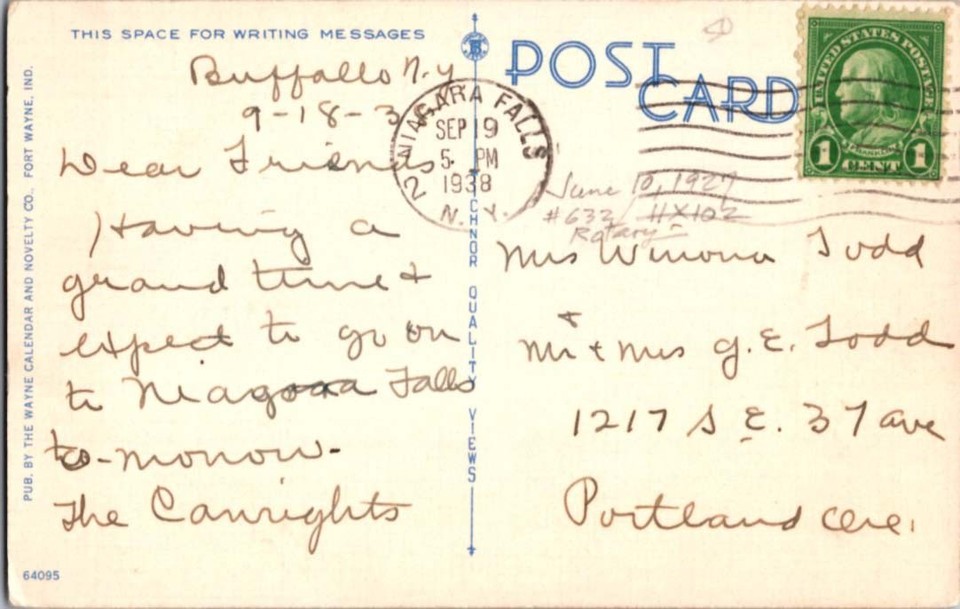 THIS SPACE FOR WRITING MESSAGES
Buffallo N.Y
9-18-3
Dear Friends
Having a
grand time +
expect to go on
to Niagara Falls
to-morrow-
The Canrights
PUB. BY THE WAYNE CALENDAR AND NOVELTY CO., FORT WAYNE, IND.
64095
TICHNOR QUALITY VIEWS
POST CARD
NIAGARA FALLS
2
SEP 19
5 - PM
1938
N.Y.
UNITED STATES POSTAGE
FRANKLIN
1 CENT 1
June 10, 1927
#632/ 11X10½
Rotary-
Mrs Winona Todd
Mr + Mrs G. E. Todd
1217 S E. 37 ave
Portland Ore.